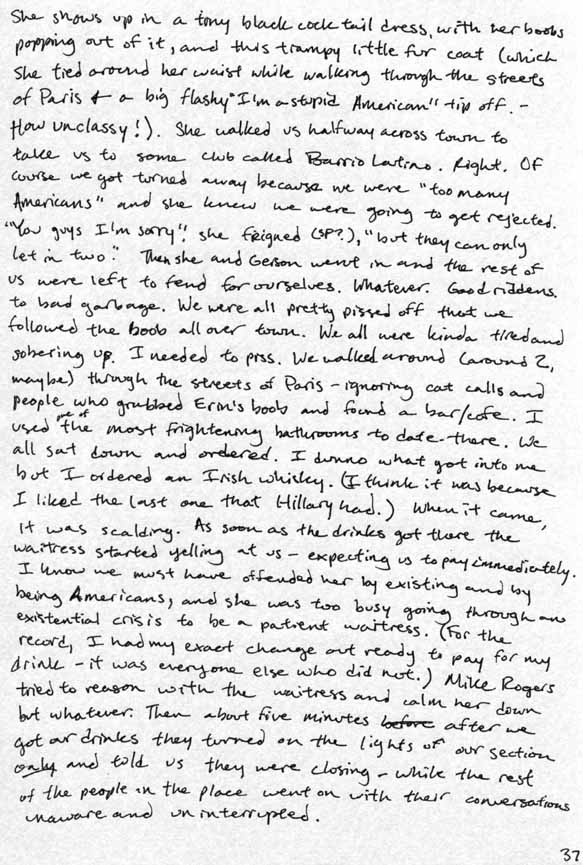 She shows up in a tony black cocktail dress, with her boobs
popping out of it, and this trampy little fur coat (which
she tied around her waist while walking through the streets
of Paris & a big flashy "I'm a stupid American" tip off. -
How unclassy!). She walked us halfway across town to
take us to some club called Barrio Latino. Right. Of
course we got turned away because we were "too many
Americans" and she knew we were going to get rejected.
"You guys I'm sorry", she feigned (SP?), "but they can only
let in two." Then she and Gerson went in and the rest of
us were left to fend for ourselves. Whatever. Good riddens.
to bad garbage. We were all pretty pissed off that we
followed the boob all over town. We all were kinda tired and
sobering up. I needed to piss. We walked around (around 2,
maybe) through the streets of Paris - ignoring cat calls and
people who grubbed Erin's boob and found a bar/cafe. I
used one of the most frightening bathrooms to date - there. We
all sat down and ordered. I dunno what got into me
but I ordered an Irish whisky. (I think it was because
I liked the last one that Hillary had.) When it came,
it was scalding. As soon as the drinks got there the
waitress started yelling at us - expecting us to pay immediately.
I know we must have offended her by existing and by
being Americans, and she was too busy going through an
existential crisis to be a patient waitress. (For the
record, I had my exact change out ready to pay for my
drink - it was everyone else who did not.) Mike Rogers
tried to reason with the waitress and calm her down
but whatever. Then about five minutes before after we
got our drinks they turned on the lights of our section
only and told us they were closing - while the rest
of the people in the place went on with their conversations
unaware and uninterrupted.
37